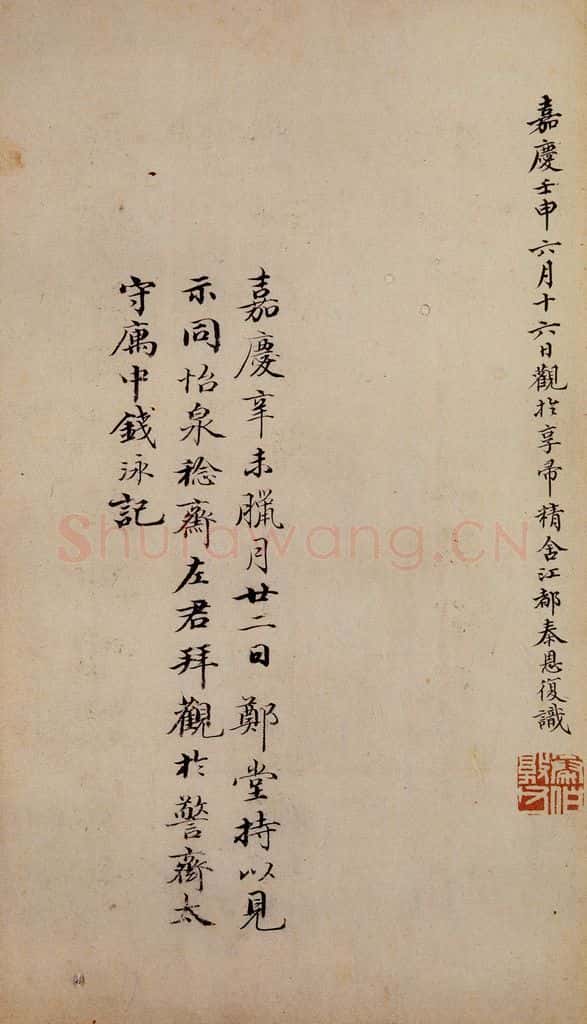 嘉慶壬申六月十六日觀於享帚精舍江都秦恩復識
嘉慶辛未臘月廿二日鄭堂持以見
示同怡泉稔齋左君拜觀於警齋太
守寓中錢泳記
Shufawang.CN